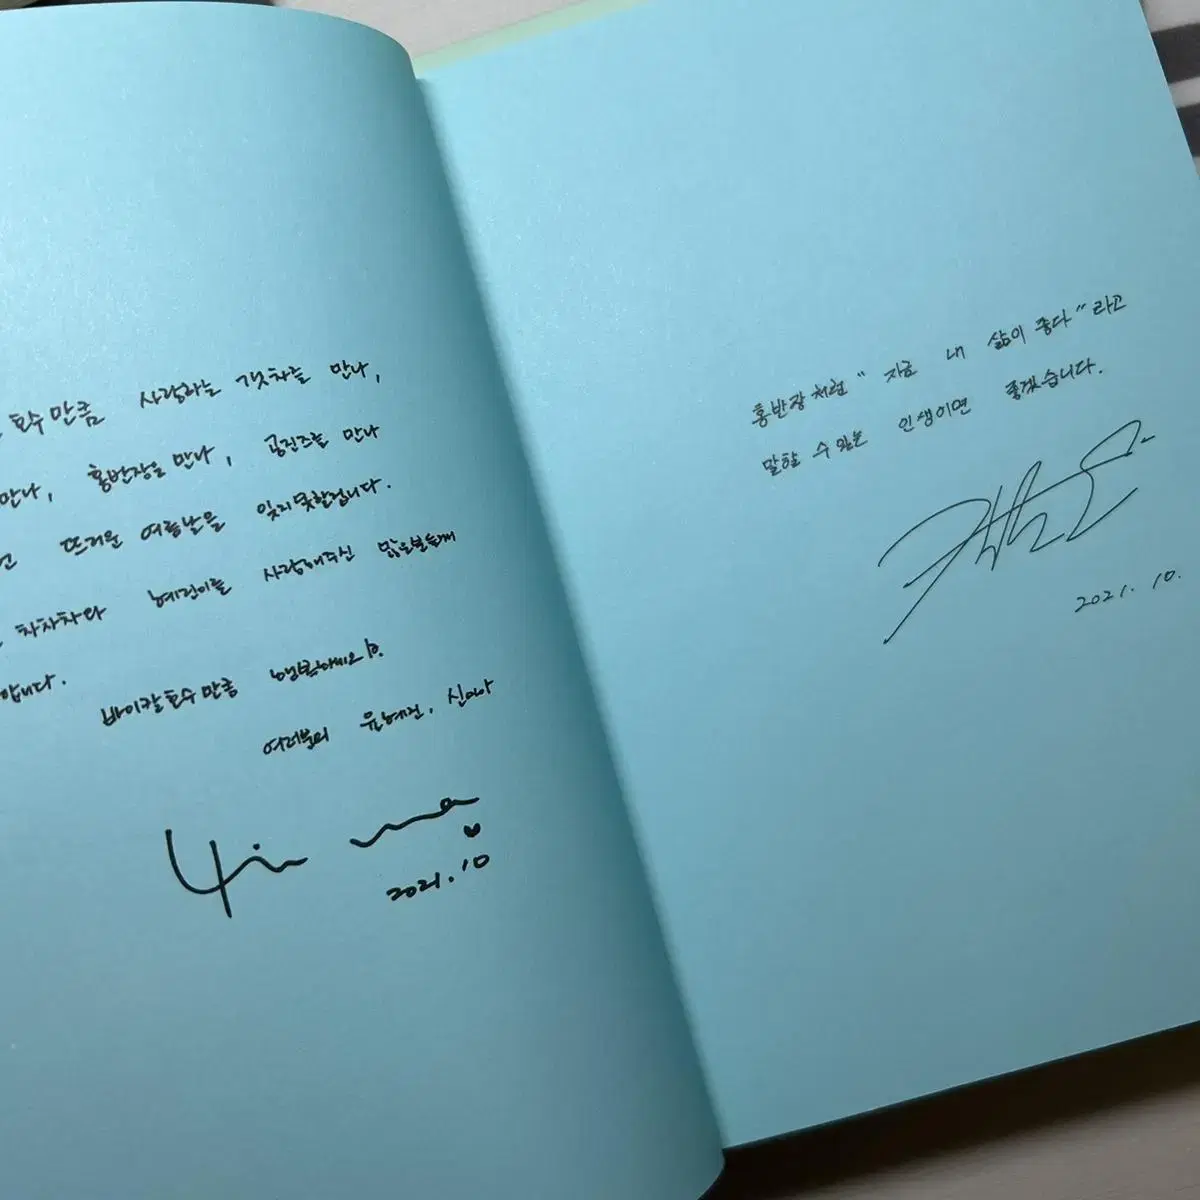 호수만큼 사랑하는 갯차를 만나,
만나, 홍반장을 만나, 공진즈를 만나
뜨거운 여름날을 잊지못할겁니다.
차차차와 혜진이를 사랑해주신 많은분들께
합니다.
바이칼호수만큼 행복하세요!
여러분의 윤혜진, 신민아
2021.10
홍반장처럼 " 지금 내 삶이 좋다" 라고
말할 수 있는 인생이면 좋겠습니다.
2021. 10.